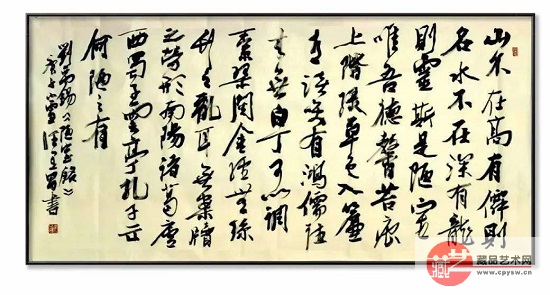 山不在高有僊則
名水不在深有龍
則靈斯是陋室
唯吾德馨苔痕
上階綠草色入簾
青談笑有鴻儒往
來無白丁可以調
素琴閱金經無絲
竹之亂耳無案牘
之勞形南陽諸葛廬
西蜀子雲亭孔子云
何陋之有
劉禹錫《陋室銘》
庚子書
藏艺
藏品艺术网
www.cpysw.cn